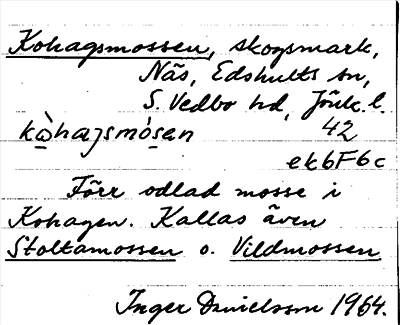 Kohagsmossen, skogsmark,
Näs, Edshults sn,
S. Vedbo hd, Jönk. l.
kò̠haʒsmó̠sen 42
ek6F6c
Förr odlad mosse i
Kohagen. Kallas även
Stoltamossen o. Vildmossen
Inger Danielsson 1964.